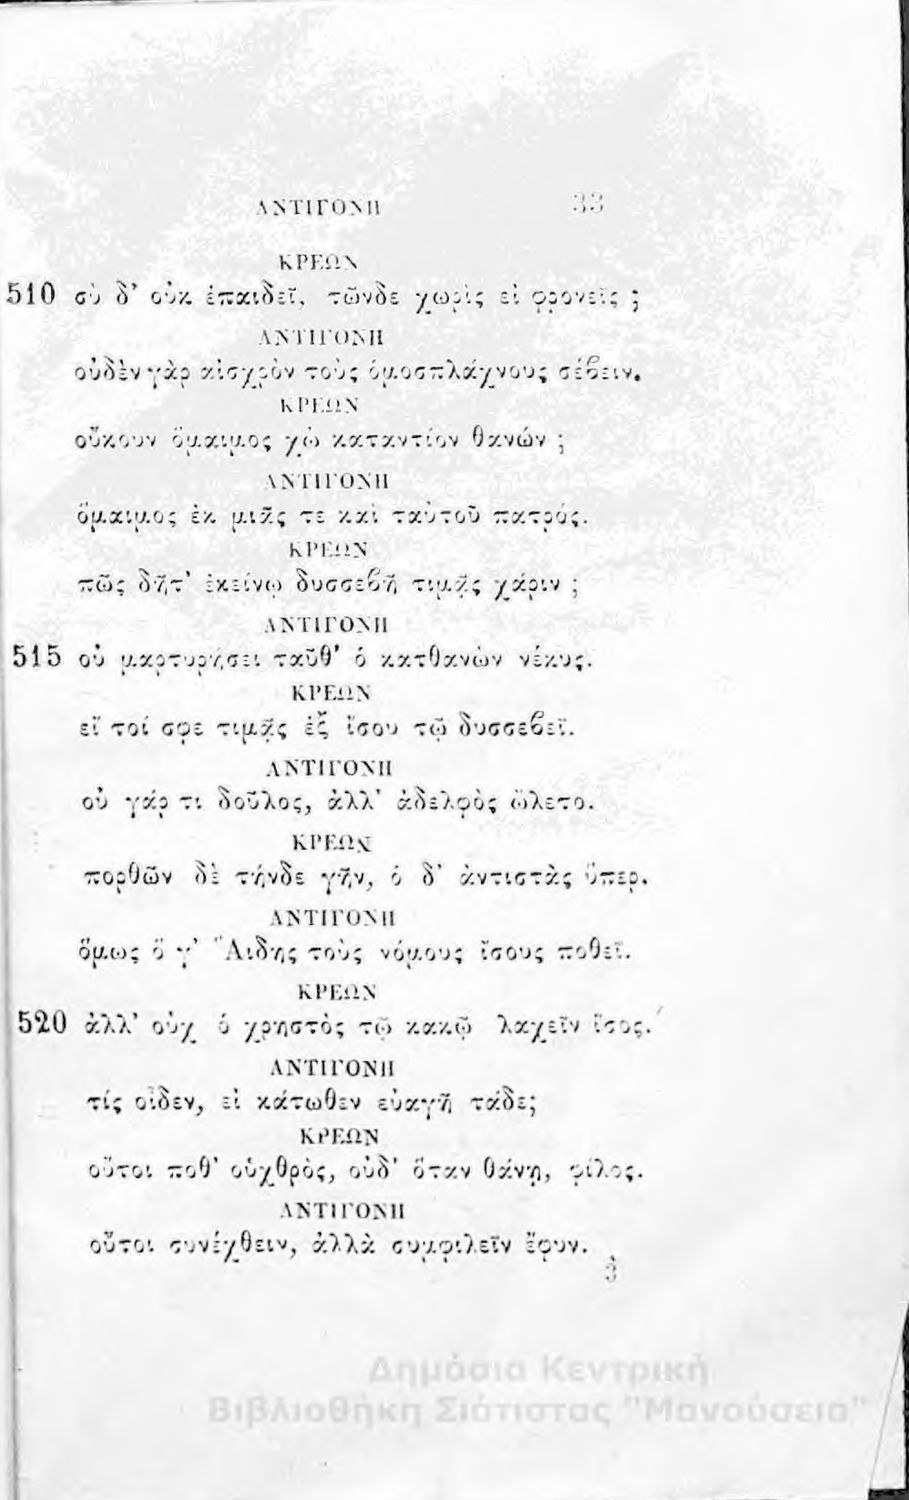 ΑΝΤΙΓΟΝΗ 33
ΚΡΕΩΝ
510 σὺ δ' οὐκ ἐπαιδεῖ, τῶνδε χωρὶς εἰ φρονεῖς ;
ΑΝΤΙΓΟΝΗ
οὐδὲν γὰρ αἰσχρὸν τοὺς ὁμοσπλάγχνους σέϐειν.
ΚΡΕΩΝ
οὔκουν ὅμαιμος χὡ καταντίον θανών ;
ΑΝΤΙΓΟΝΗ
ὅμαιμος ἐκ μιᾶς τε καὶ ταὐτοῦ πατρός.
ΚΡΕΩΝ
πῶς δῆτ' ἐκείνῳ δυσσεϐῆ τιμᾷς χάριν ;
ΑΝΤΙΓΟΝΗ
515 οὐ μαρτυρήσει ταῦθ' ὁ κατθανὼν νέκυς.
ΚΡΕΩΝ
εἴ τοί σφε τιμᾷς ἐξ ἴσου τῷ δυσσεϐεῖ.
ΑΝΤΙΓΟΝΗ
οὐ γάρ τι δοῦλος, ἀλλ' ἀδελφὸς ὤλετο.
ΚΡΕΩΝ
πορθῶν δὲ τήνδε γῆν, ὁ δ' ἀντιστὰς ὕπερ.
ΑΝΤΙΓΟΝΗ
ὅμως ὅ γ' Ἅιδης τοὺς νόμους ἴσους ποθεῖ.
ΚΡΕΩΝ
520 ἀλλ' οὐχ ὁ χρηστὸς τῷ κακῷ λαχεῖν ἴσος.
ΑΝΤΙΓΟΝΗ
τίς οἶδεν, εἰ κάτωθεν εὐαγῆ τάδε;
ΚΡΕΩΝ
οὔτοι ποθ' οὑχθρὸς, οὐδ' ὅταν θάνῃ, φίλος.
ΑΝΤΙΓΟΝΗ
οὔτοι συνέχθειν, ἀλλὰ συμφιλεῖν ἔφυν.
3
Δημόσια Κεντρική
Βιβλιοθήκη Σιάτιστας "Μανούσεια"